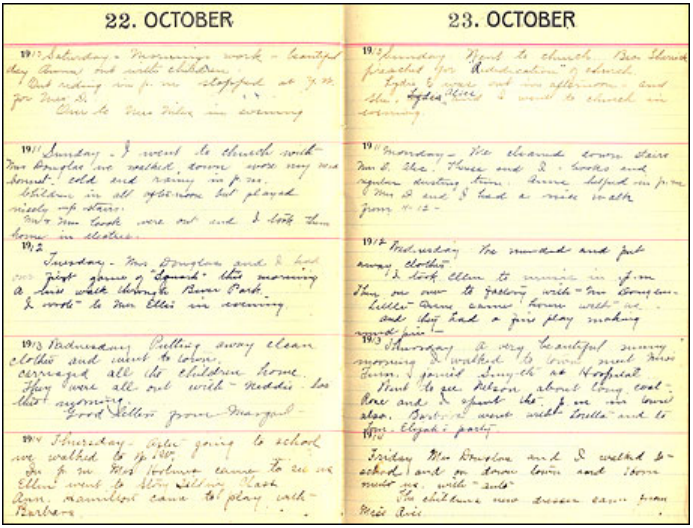 22. OCTOBER
1910 Saturday - Mornings work - beautiful
day Anna out with children.
Out riding in p.m. stopped at Y.M.
for Miss D.
Over to Miss in evening
1911 Sunday - I went to church with
Mrs Douglas, we walked down, wore my new
bonnet. Cold and rainy in p.m.
Children in all afternoon but played
nicely up stairs.
Mr & Mrs Cook were out and I took them
home in electric.
1912
Tuesday - Mrs Douglas and I had
our first game of "Squash" this morning
A nice walk through River Park.
I wrote to Mrs Ellis in evening
1913 Wednesday Putting away clean
clothes and went to town.
carriaged all the children home.
They were all out with Neddie
this morning.
Good letters from Margaret
1914 Thursday - After going to school
we walked to
In p.m. Mrs Holmes came to see us
Ellen went to Story Telling Class
Ann Hamilton came to play with
Barbara.
23. OCTOBER
1910 Sunday Went to church. Rev.
preached for Rededication of church.
Lydia & I was out in afternoon - and
She, Lydia Alice and I went to church in
evening
1911 Monday - We cleaned down stairs
Mrs D. and I books and
regular dusting. Anna helped in p.m.
Mrs D and I had a nice walk
from 4-12 -
1912
Wednesday We mended and put
away clothes.
I took Ellen to music in p.m.
Then on over to factory with Mr Douglas
Little came home with us.
and they had a fine play making
mud pies -
1913 Thursday A very beautiful sunny
morning I walked to town met Miss
joined Smyth at Hospital
Went to see Nelson about long coat.
Rose and I spent the p.m in town
also. Barbara went with Loretta and to
Elijah's party
1914
Friday Mrs Douglas and I walked to
school and on down town and
met us with auto
The childrens new dresses came from
Miss Rice